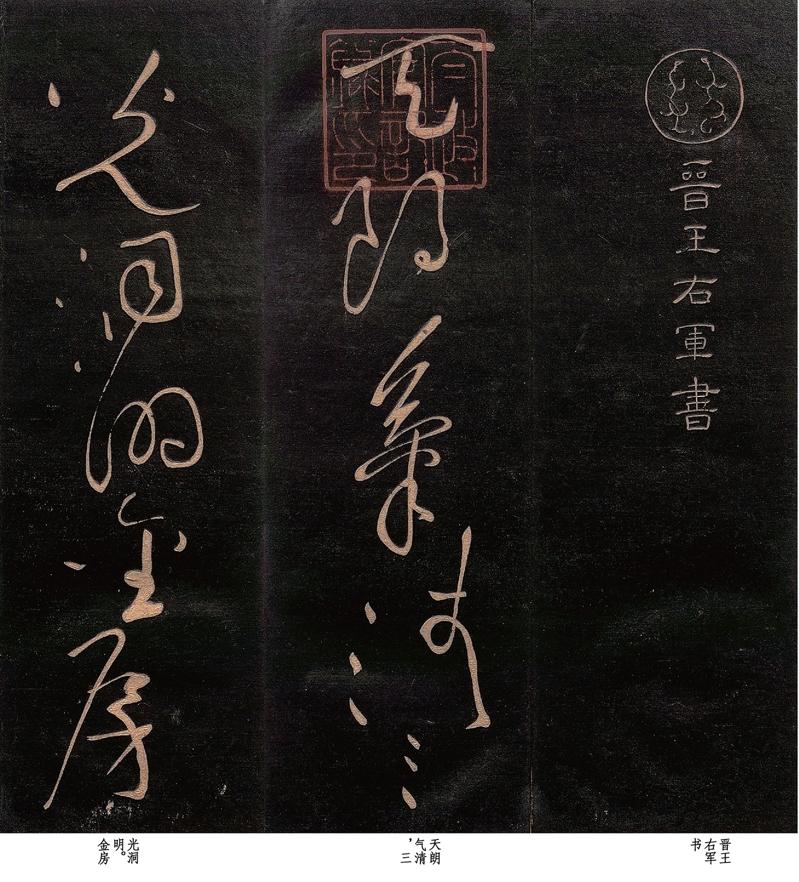 晉王右軍書
天朗氣清三
光洞明金房
晋王
右军
书
天朗
气清
，三
光洞
明。
金房